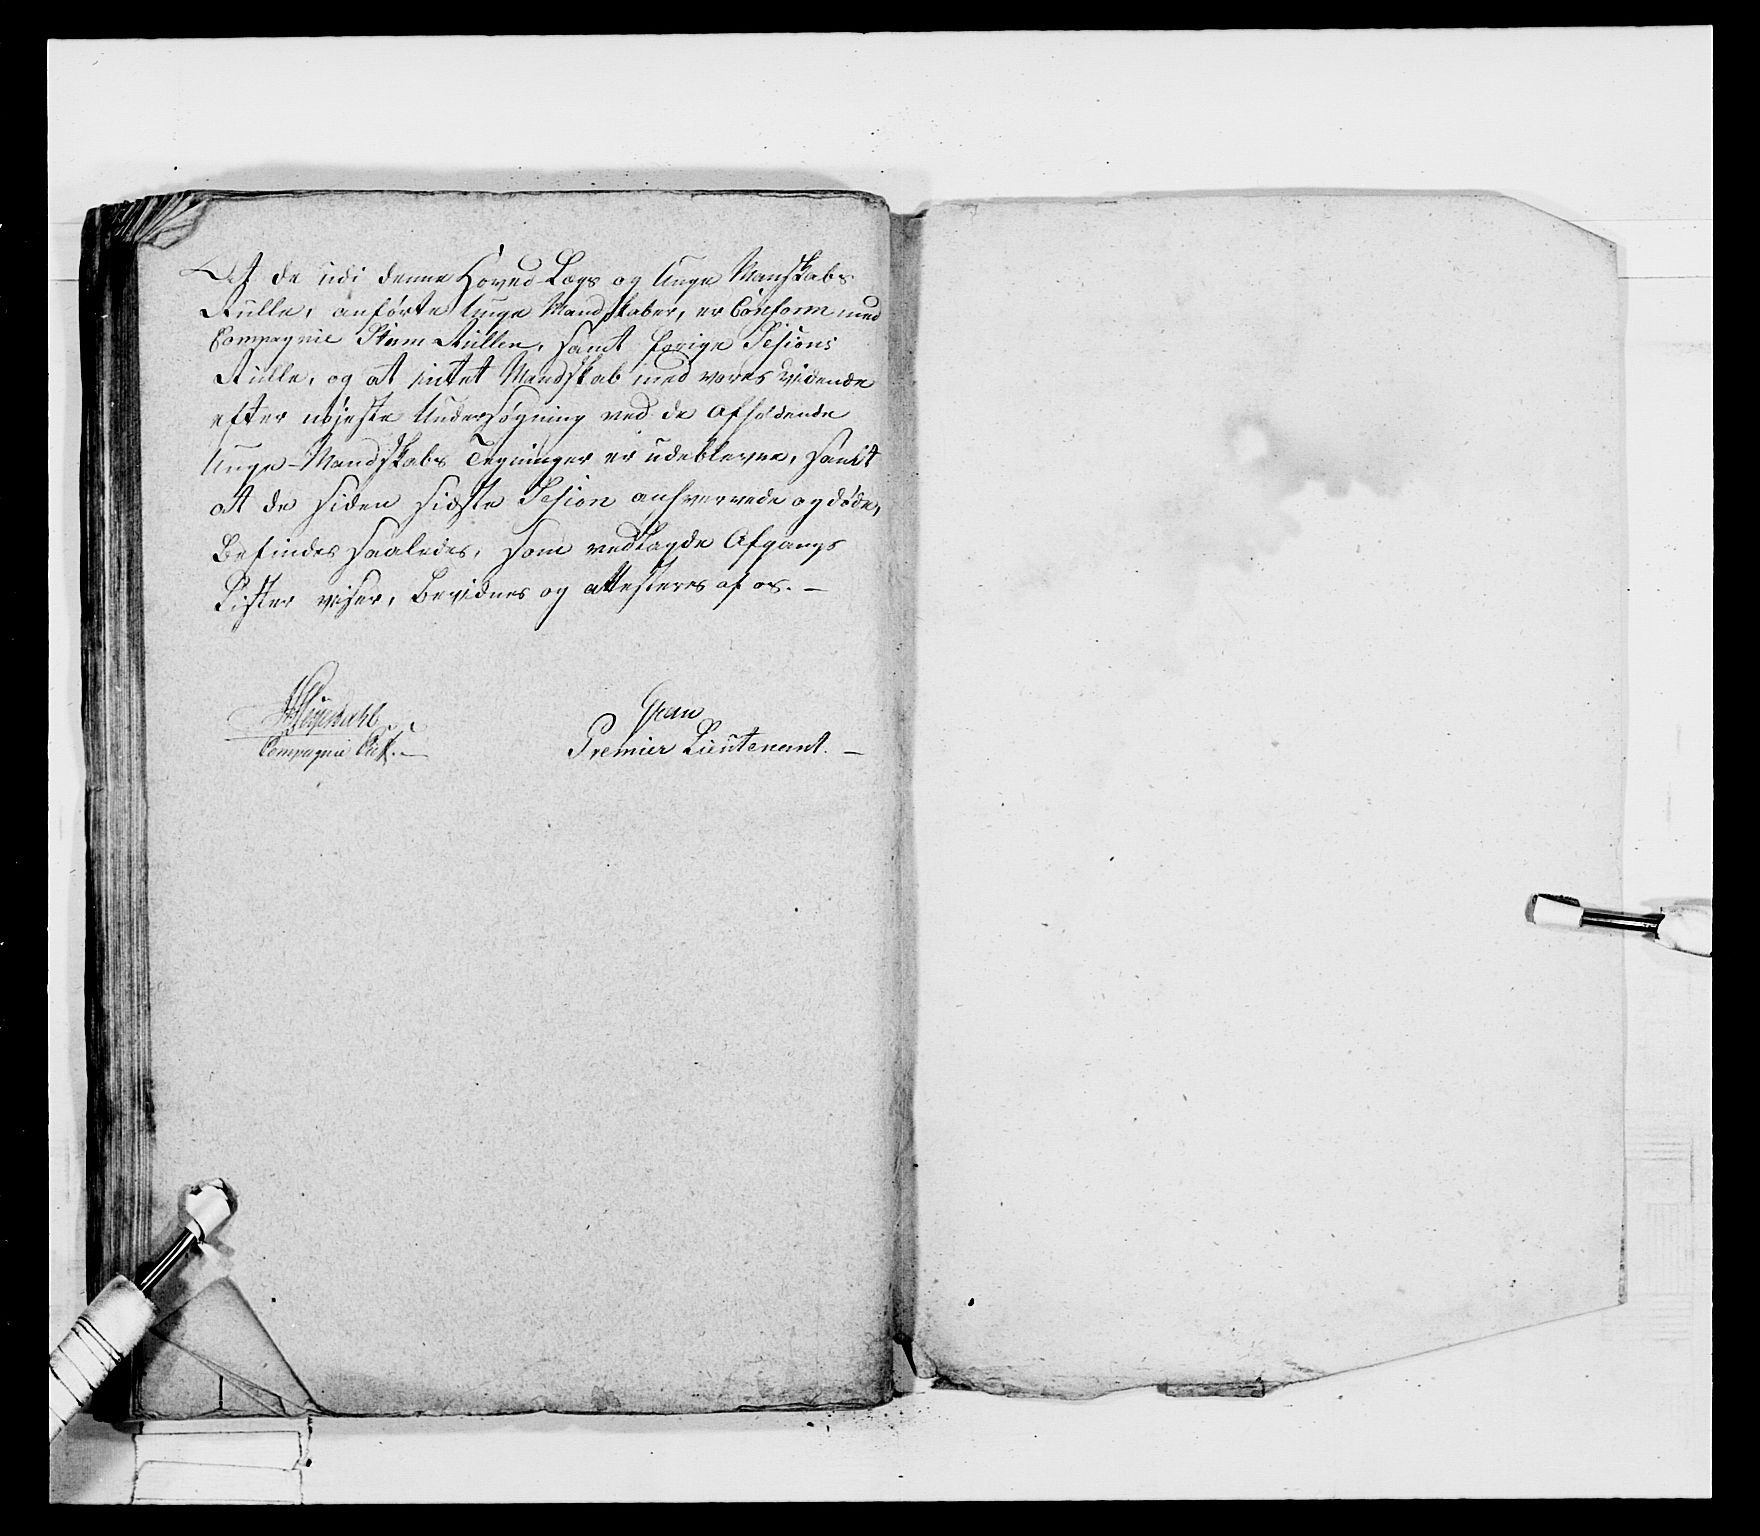 At de udi denne Hoved-Lægs og Unge Manskabs
Rulle, anførte Unge Mandskaber, er Conform med
Compagnie Stam Rullen, samt forige Sesions
Rulle, og at intet Mandskab med vores vidende
efter nøjeste Undersøgning ved de afholdende
Unge-Mandskabs Tegninger er udeblevne, samt
at de siden sidste Sesion anhvervede og døde,
Befindes saaledes, som vedlagde Afgangs
Lister viser, Bevidnes og attesteres af os. —
Gran
Compagnie Chef. —
Premier Lieutenant. —